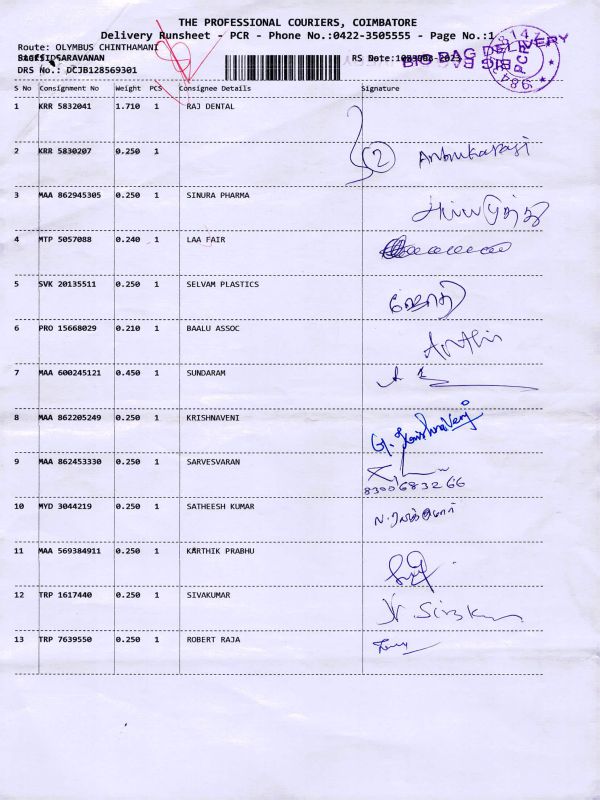 THE PROFESSIONAL COURIERS, COIMBATORE
Delivery Runsheet - PCR - Phone No.:0422-3505555 - Page No.:1
Route: OLYMBUS CHINTHAMANI
SARAVANAN RS Date:
DRS No.: DCJB128569301
BIG BAG DELIVERY
PCR
S No Consignment No Weight PCS Consignee Details Signature
1 KRR 5832041 1.710 1 RAJ DENTAL
2 KRR 5830207 0.250 1 2
3 MAA 862945305 0.250 1 SINURA PHARMA
4 MTP 5057088 0.240 1 LAA FAIR
5 SVK 20135511 0.250 1 SELVAM PLASTICS
6 PRO 15668029 0.210 1 BAALU ASSOC
7 MAA 600245121 0.450 1 SUNDARAM
8 MAA 862205249 0.250 1 KRISHNAVENI G. Krishnaveni
9 MAA 862453330 0.250 1 SARVESVARAN
8300683266
10 MYD 3044219 0.250 1 SATHEESH KUMAR
11 MAA 569384911 0.250 1 KARTHIK PRABHU
12 TRP 1617440 0.250 1 SIVAKUMAR
13 TRP 7639550 0.250 1 ROBERT RAJA